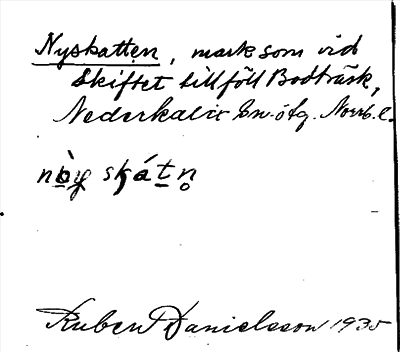 Nyskatten, mark som vid
skiftet tillföll Bodträsk,
Nederkalix sn. ö. tg. Norrb. l.
nòy skátn̥
Ruben Danielsson 1935